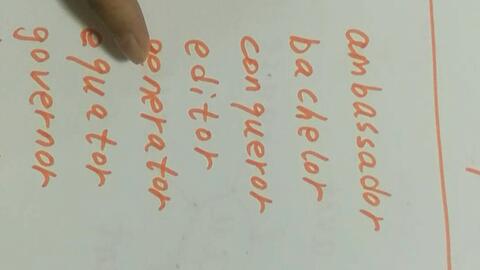 ambassador
bachelor
conqueror
editor
generator
equator
governor